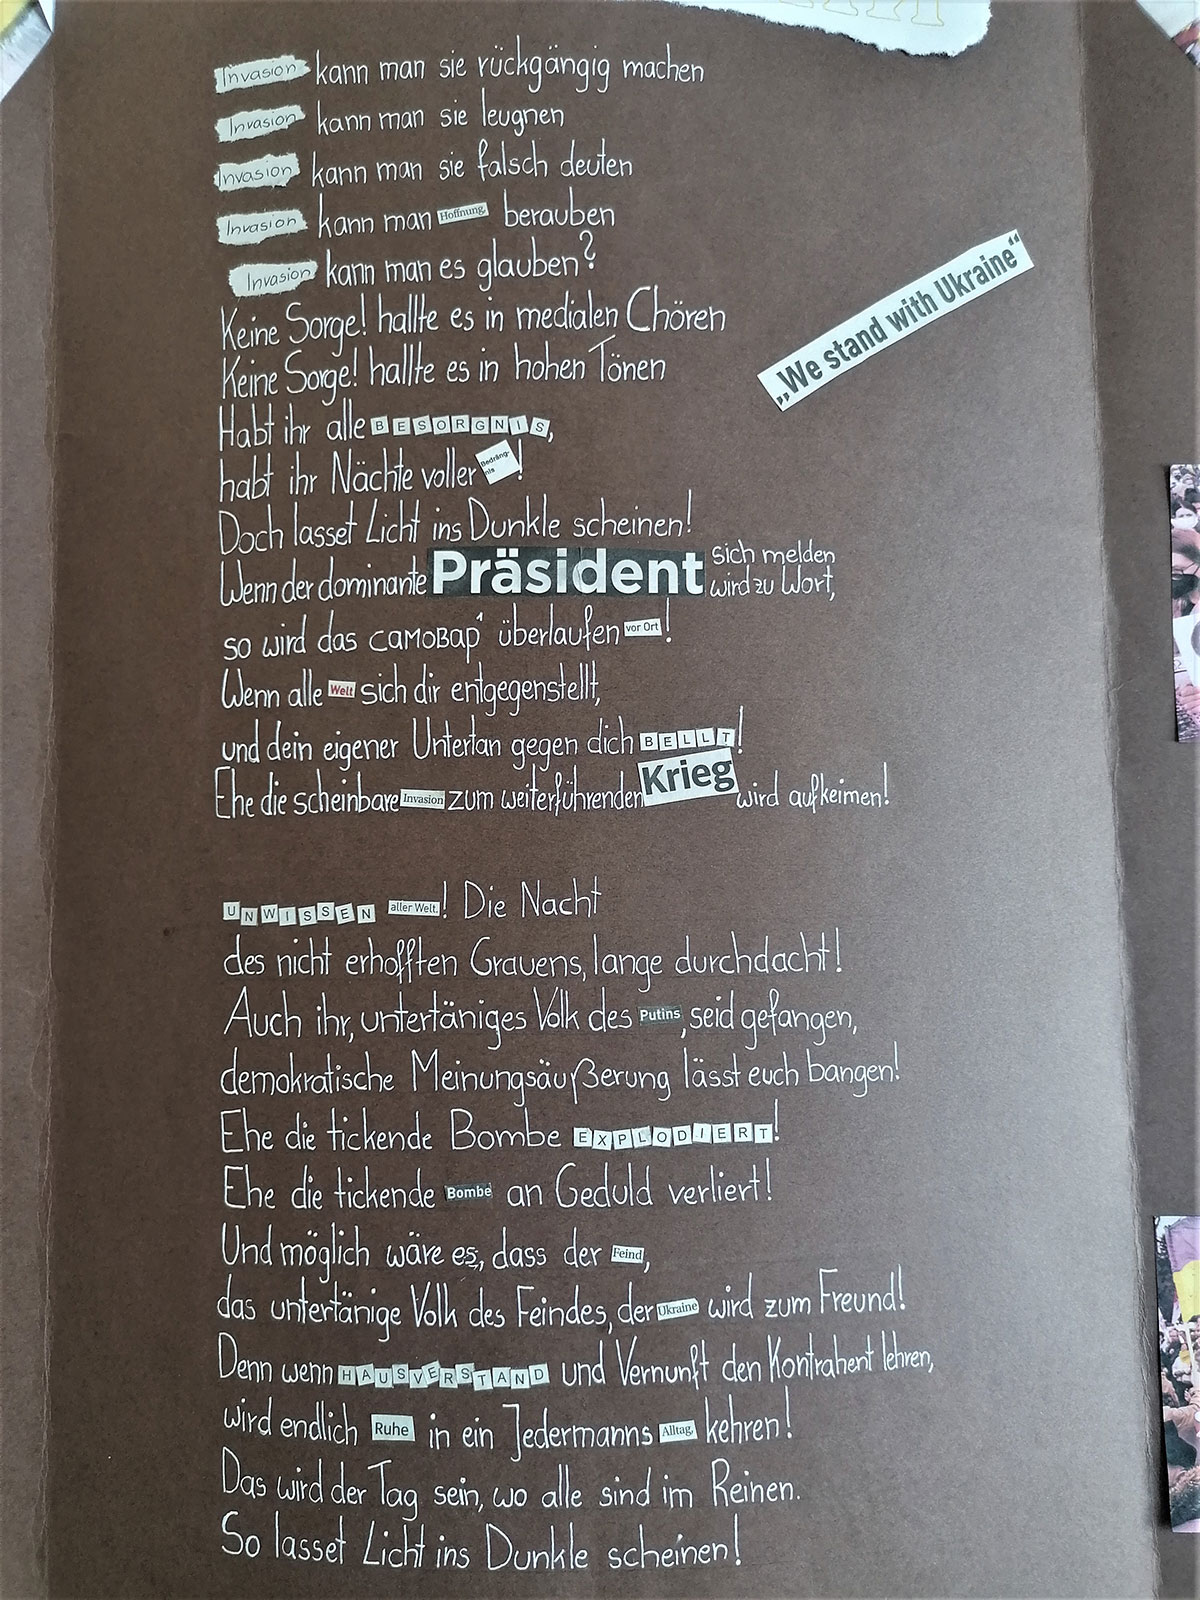 Invasion kann man sie rückgängig machen
Invasion kann man sie leugnen
Invasion kann man sie falsch deuten
Invasion kann man Hoffnung, berauben
Invasion kann man es glauben?
Keine Sorge! hallte es in medialen Chören
Keine Sorge! hallte es in hohen Tönen
„We stand with Ukraine“
Habt ihr alle BESORGNIS,
habt ihr Nächte voller Bedräng-
nis!
Doch lasset Licht ins Dunkle scheinen!
Wenn der dominante Präsident sich melden
wird zu Wort,
so wird das самовар' überlaufen vor Ort!
Wenn alle Welt sich dir entgegenstellt,
und dein eigener Untertan gegen dich BELLT!
Ehe die scheinbare Invasion zum weiterführenden Krieg wird aufkeimen!
UNWISSEN aller Welt.! Die Nacht
des nicht erhofften Grauens, lange durchdacht!
Auch ihr, untertäniges Volk des Putins, seid gefangen,
demokratische Meinungsäußerung lässt euch bangen!
Ehe die tickende Bombe EXPLODIERT!
Ehe die tickende Bombe an Geduld verliert!
Und möglich wäre es, dass der Feind,
das untertänige Volk des Feindes, der Ukraine wird zum Freund!
Denn wenn HAUSVERSTAND und Vernunft den Kontrahent lehren,
wird endlich Ruhe in ein Jedermanns Alltag, kehren!
Das wird der Tag sein, wo alle sind im Reinen.
So lasset Licht ins Dunkle scheinen!